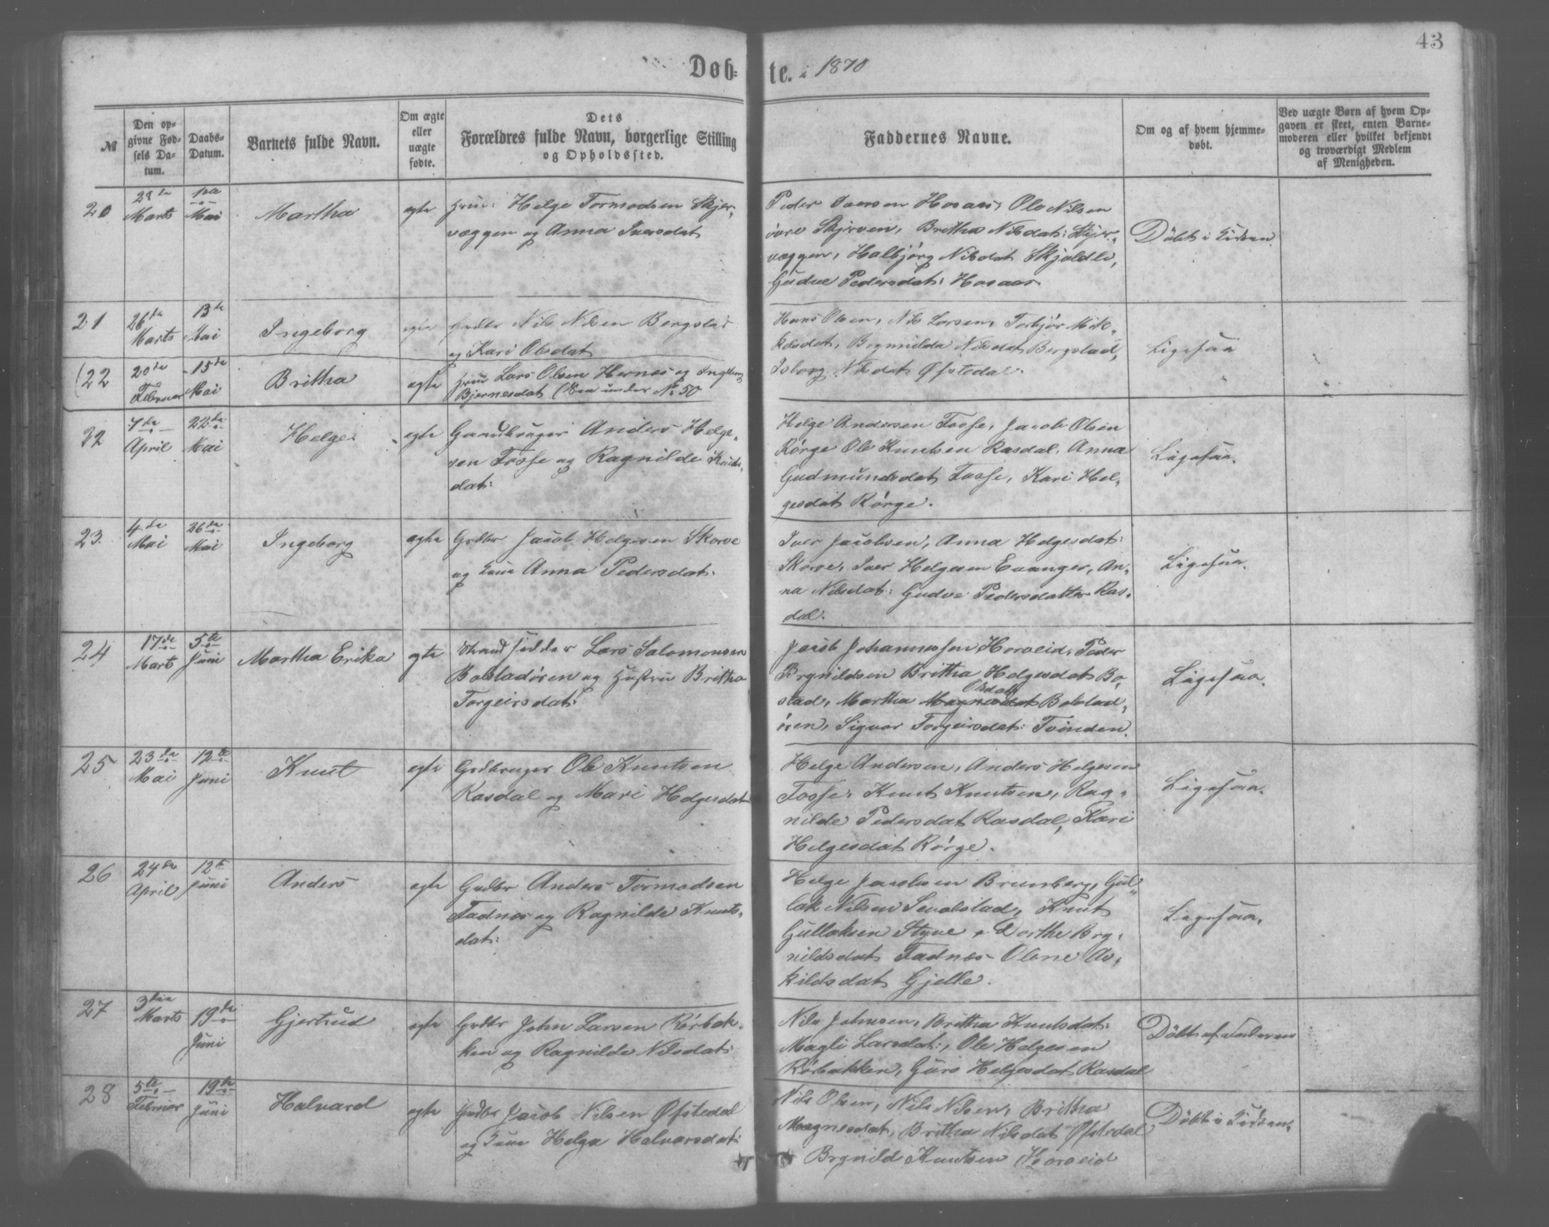 43
Døb-te. i 1870
№
Den op-
givne Fød-
sels Da-
tum.
Daabs-
Datum.
Barnets fulde Navn.
Om ægte
eller
uægte
fødte.
Dets
Forældres fulde Navn, borgerlige Stilling
og Opholdssted.
Faddernes Navne.
Om og af hvem hjemme-
døbt.
Ved uægte Børn af hvem Op-
gaven er skeet, enten Barne-
moderen eller hvilket bekjendt
og troværdigt Medlem
af Menigheden.
20
Marts
Mai
Martha
egte
Helge Tormodsen Skjer-
væggen og Anna Iversdat
Peder Hosaas, Ole Nilsen
øvre Skjerven, Britha Nilsdat: Skjer-
væggen, Halbjørg Nilsdat Skjoldli,
Gudve Pedersdat: Hosaas
Døbt i
21
26de
Marts
13de
Mai
Ingeborg
Nils Nilsen Bergstad
og Kari Olsdat
Hans Olsen, Nils Larsen, Torbjør Nils-
Brynnilda Nilsdat Bergstad,
Nilsdat Øfstedal.
Ligesaa
(22
20de
Februar
15de
Mai
Britha
egte
Lars Olsen Hernes og
Bjørnesdat under No 50
32
7de
April
22de
Mai
Helge
egte
Gaardbruger Anders Helge-
sen Fosse og Ragnilde Knuts-
dat:
Helge Andersen Fosse, Jacob Olsen
Rørge Ole Knutsen Rasdal, Anna
Gudmundsdat Fosse, Kari Hel-
gesdat Rørge.
Ligesaa.
23.
4de
Mai
26de
Mai
Ingeborg
egte
Grdbr Jacob Helgesen Skorve
og Anna Pedersdat:
Iver Jacobsen, Anna Helgesdat:
Skorve, Iver Helgesen Evanger, An-
na Nilsdat: Gudve Pedersdatter Ras-
dal.
Ligesaa.
24
17de
Marts
5te
Juni
Martha Erika
egte
Strandsidder Lars Salomonsen
Bolstadøren og Hustru Britha
Torgeirsdat:
Jacob Johannessen Horveid, Peder
Brynildsen Britha Helgesdat Bo-
stad, Martha Magnesdat Olsdat Bolstad-
øren, Sigvor Torgeirsdat: Tvinden.
Ligesaa.
25
23de
Mai
12te
Juni
Knut
egte
Grdbruger Ole Knutsen
Rasdal og Mari Helgesdat
Helge Andersen, Anders Helgesen
Fosse, Knut Knutsen, Rag-
nilde Pedersdat Rasdal, Kari
Helgesdat Rørge.
Ligesaa.
26
24de
April
12te
Juni
Anders
egte
Grdbr Anders Tormodsen
Fadnes og Ragnilde Knuts-
dat:
Helge Jacobsen Brunborg, Gul-
lak Nilsen Knut
Gullaksen Styve, Dorthe Bry-
nildsdat Fadnes Olene As-
kildsdat Gjelle.
Ligesaa.
27
3die
Marts
19de
Juni
Gjertrud
egte
Grdbr John Larsen Rørbak-
ken og Ragnilde Nilsdat:
Nils Johnsen, Britha Knutsdat:
Magli Larsdat:, Ole Helgesen
Rørbakken, Guro Helgesdat Rasdal
Døbt af Faderen
28
5te
Februar
19de
Juni
Halvard
egte
Grdbr Jacob Nilsen Øfstedal
og Helga Halvarsdat:
Nils Olsen, Nils Nilsen, Britha
Magnesdat, Britha Nilsdat Øfstedal,
Brynild Knutsen Horveid
Døbt i